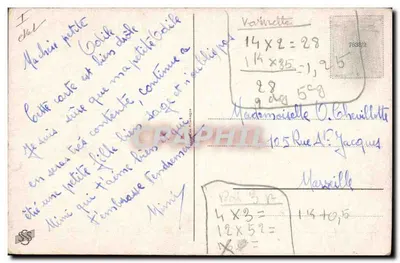 Ma chère petite
Odile
Cette carte est bien drôle
Je suis sûre que ma petite Odile
en sera très contente, continue à
être une petite fille bien sage et n'oublie pas
Mimi qui t'aime bien et qui
t'embrasse tendrement
Mimi
14 x 2 = 28
14 x 35 = 1, 25
28
5
TIMBRE
Mademoiselle O. Chevillotte
125 Rue St Jacques
Marseille
4 x 3 =
12 x 52 =
1k + 0,5
CARTE POSTALE